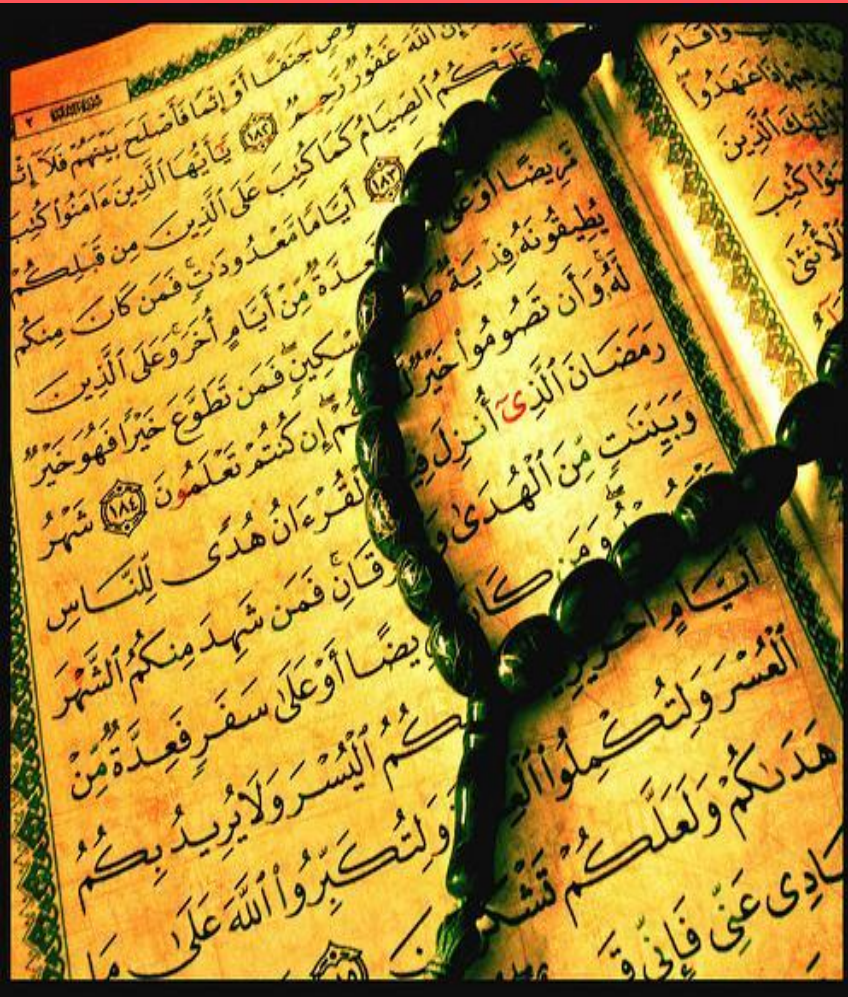 ٢
جَنَفًا أَوْ إِثْمًا فَأَصْلَحَ بَيْنَهُمْ فَلَآ
ٱللَّهَ غَفُورٌ رَّحِيمٌ ١٨٢ يَٰٓأَيُّهَا ٱلَّذِينَ ءَامَنُوا۟ كُتِبَ
عَلَيْكُمُ ٱلصِّيَامُ كَمَا كُتِبَ عَلَى ٱلَّذِينَ مِن قَبْلِكُمْ
١٨٣ أَيَّامًا مَّعْدُودَٰتٍ ۚ فَمَن كَانَ مِنكُم
مَّرِيضًا أَوْ عَلَىٰ عِدَّةٌ مِّنْ أَيَّامٍ أُخَرَ ۚ وَعَلَى ٱلَّذِينَ
يُطِيقُونَهُۥ فِدْيَةٌ مِسْكِينٍ ۖ فَمَن تَطَوَّعَ خَيْرًا فَهُوَ خَيْرٌ
لَّهُۥ ۚ وَأَن تَصُومُوا۟ خَيْرٌ إِن كُنتُمْ تَعْلَمُونَ ١٨٤ شَهْرُ
رَمَضَانَ ٱلَّذِىٓ أُنزِلَ فِيهِ ٱلْقُرْءَانُ هُدًى لِّلنَّاسِ
وَبَيِّنَٰتٍ مِّنَ ٱلْهُدَىٰ فَمَن شَهِدَ مِنكُمُ ٱلشَّهْرَ
وَمَن كَانَ أَوْ عَلَىٰ سَفَرٍ فَعِدَّةٌ مِّنْ
أَيَّامٍ أُخَرَ ٱلْيُسْرَ وَلَا يُرِيدُ بِكُمُ
ٱلْعُسْرَ وَلِتُكْمِلُوا۟ وَلِتُكَبِّرُوا۟ ٱللَّهَ عَلَىٰ مَا
هَدَىٰكُمْ وَلَعَلَّكُمْ
عَنِّى فَإِنِّى
وَأَقَامَ
إِذَا عَٰهَدُوا۟
ٱلَّذِينَ
كُتِبَ
ٱلْأُنثَىٰ